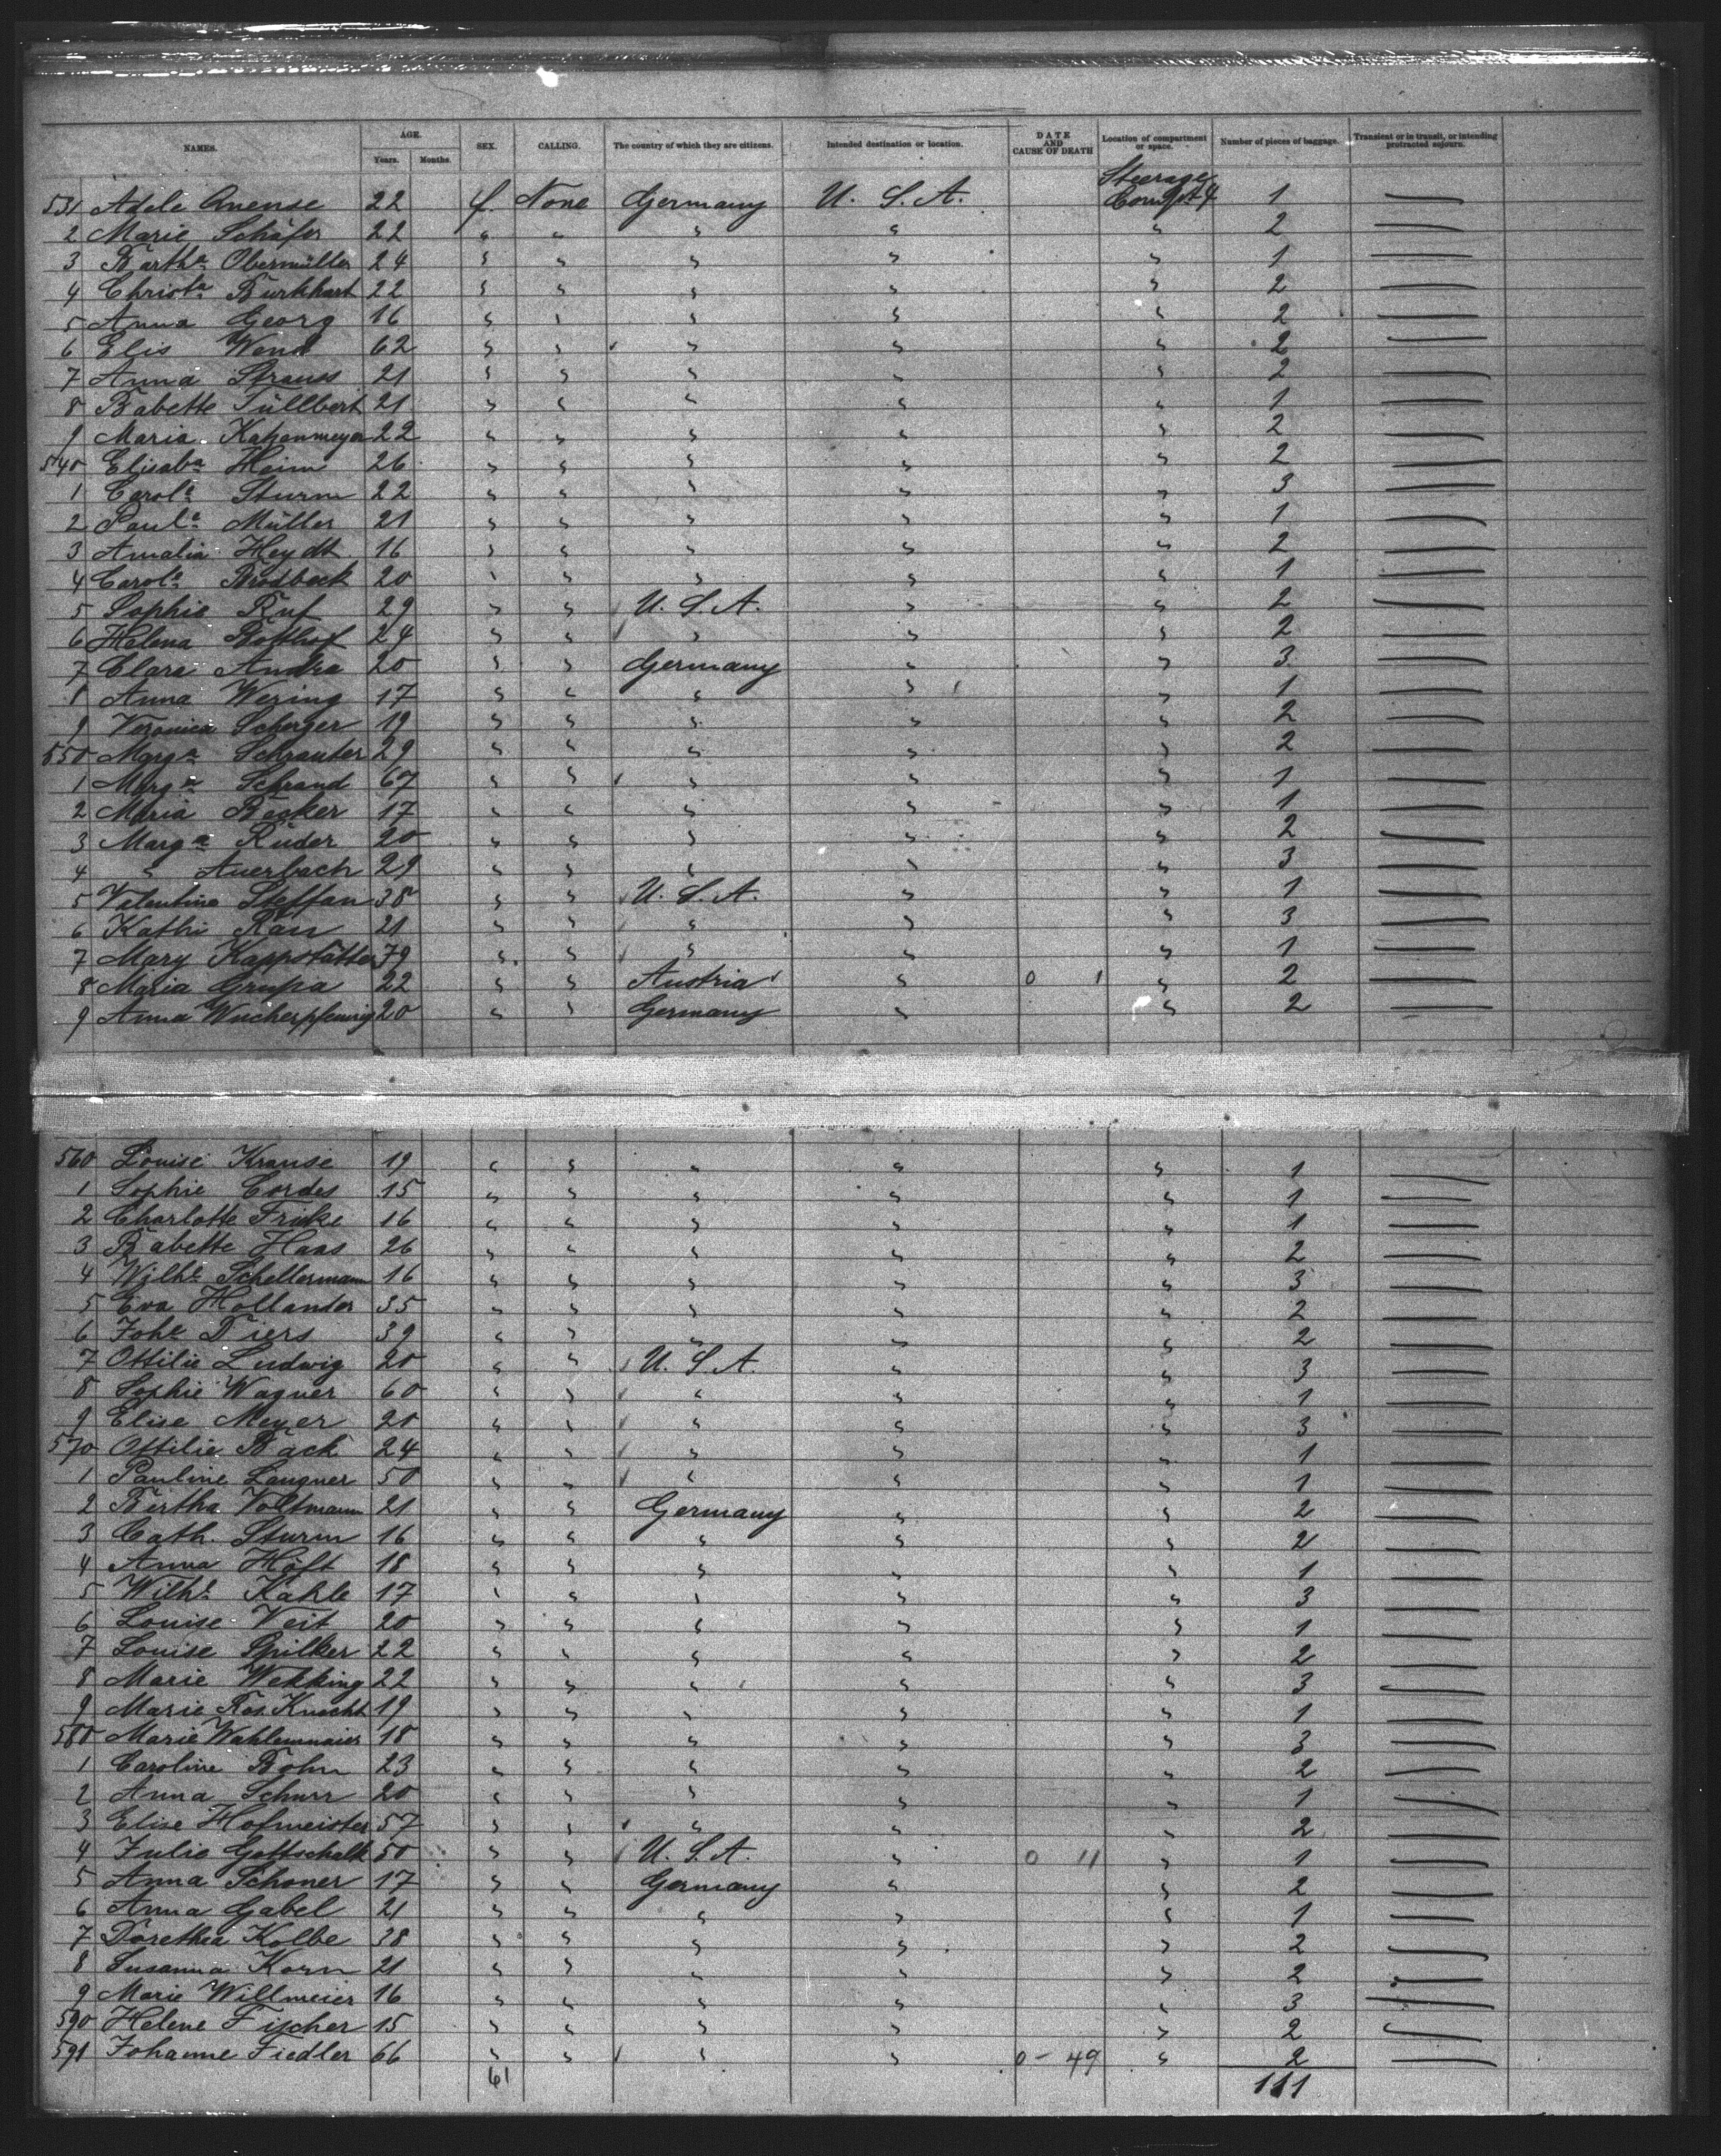 NAMES. AGE. Years. Months. SEX. CALLING. The country of which they are citizens. Intended destination or location. DATE AND CAUSE OF DEATH Location of compartment or space. Number of pieces of baggage. Transient or in transit, or intending protracted sojourn.
531 Adele 22 f. None Germany U. S. A. Steerage Compt 4 1 —
2 Marie Schäfer 22 " " " " " 2 —
3 Barth.a Obermüller 24 " " " " " 1 —
4 Christ.a Burkhart 22 " " " " " 2 —
5 Anna Georg 16 " " " " " 2 —
6 Elis Wend 62 " " " " " 2 —
7 Anna Strauss 21 " " " " " 2 —
8 Babette Tüllbert 21 " " " " " 1 —
9 Maria Katzenmeyer 22 " " " " " 2 —
540 Elisab.a Heim 26 " " " " " 2 —
1 Carol.e Sturm 22 " " " " " 3 —
2 Paul.e Müller 21 " " " " " 1 —
3 Amalia Heydt 16 " " " " " 2 —
4 Carol.e Brodbeck 20 " " " " " 1 —
5 Sophie Ruf 29 " " U. S. A. " " 2 —
6 Helena Botthof 24 " " " " " 2 —
7 Clara Andra 20 " " Germany " " 3 —
8 Anna Wering 17 " " " " " 1 —
9 Veronica Scherger 19 " " " " " 2 —
550 Marg.a Schrauter 29 " " " " " 2 —
1 Marg.a Schrand 67 " " " " " 1 —
2 Maria Becker 17 " " " " " 1 —
3 Marg.a Ruder 20 " " " " " 2 —
4 " Auerbach 29 " " " " " 3 —
5 Valentine Steffan 38 " " U. S. A. " " 1 —
6 Kathi Rau 21 " " " " " 3 —
7 Mary Kappstätter 79 " " " " " 1 —
8 Maria Grupa 22 " " Austria " 0 1 " 2 —
9 Anna Wucherpfennig 20 " " Germany " " 2 —
560 Louise Krause 19 " " " " " 1 —
1 Sophie Cordes 15 " " " " " 1 —
2 Charlotte Fricke 16 " " " " " 1 —
3 Babette Haas 26 " " " " " 2 —
4 Wilh.e Schellermann 16 " " " " " 3 —
5 Eva Hollander 35 " " " " " 2 —
6 Joh.e Diers 39 " " " " " 2 —
7 Ottilie Ludwig 20 " " U. S. A. " " 3 —
8 Sophie Wagner 60 " " " " " 1 —
9 Elise Meyer 20 " " " " " 3 —
570 Ottilie Back 24 " " " " " 1 —
1 Pauline Laugner 50 " " " " " 1 —
2 Bertha Voltmann 21 " " Germany " " 2 —
3 Cath. Sturm 16 " " " " " 2 —
4 Anna Höft 18 " " " " " 1 —
5 Wilh.e Kahle 17 " " " " " 3 —
6 Louise Veit 20 " " " " " 1 —
7 Louise Spilker 22 " " " " " 2 —
8 Marie Wekking 22 " " " " " 3 —
9 Marie Ros. Knecht 19 " " " " " 1 —
580 Marie Wahlenmaier 18 " " " " " 3 —
1 Caroline Bohn 23 " " " " " 2 —
2 Anna Schurr 20 " " " " " 1 —
3 Elise Hofmeister 57 " " " " " 2 —
4 Julie Gottschalk 50 " " U. S. A. " 0 11 " 1 —
5 Anna Schoner 17 " " Germany " " 2 —
6 Anna Gabel 21 " " " " " 1 —
7 Dorethea Kolbe 38 " " " " " 2 —
8 Susanna Korn 21 " " " " " 2 —
9 Marie Willmeier 16 " " " " " 3 —
590 Helene Fischer 15 " " " " " 2 —
591 Johanne Fiedler 66 " " " " 0 - 49 " 2 —
61 111